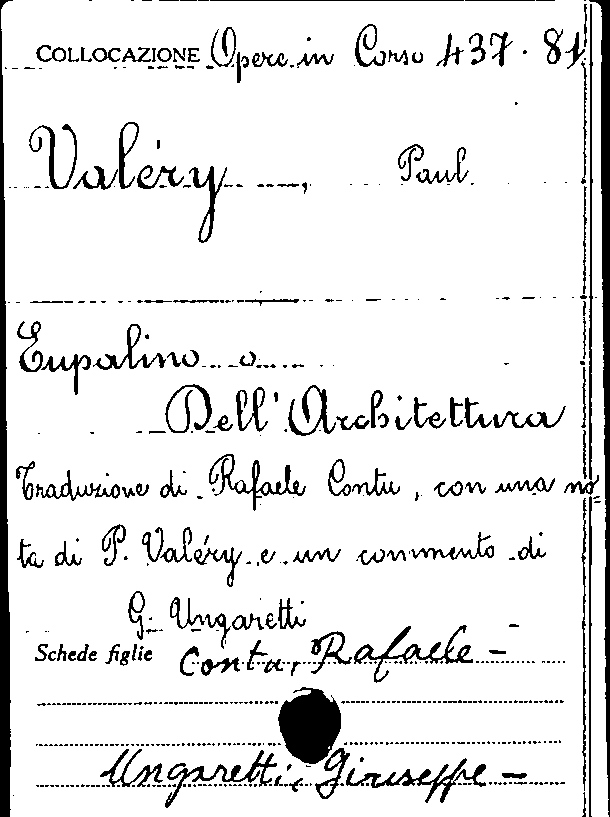 COLLOCAZIONE Opere in Corso 437.81
Valéry, Paul
Eupalino o
Dell'Architettura
Traduzione di Rafaele Contu, con una no=
ta di P. Valéry e un commento di
G. Ungaretti
Schede figlie Contu, Rafaele -
Ungaretti, Giuseppe -